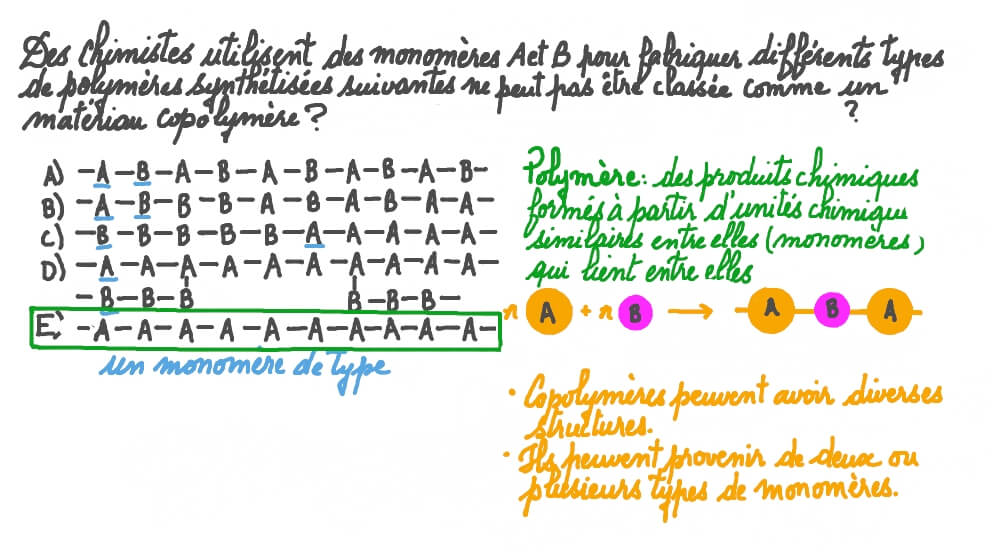 Des chimistes utilisent des monomères A et B pour fabriquer différents types
de polymères synthétisées suivantes ne peut pas être classée comme un
matériau copolymère ?
?
A) –A–B–A–B–A–B–A–B–A–B–
B) –A–B–B–B–A–B–A–B–A–A–
C) –B–B–B–B–B–A–A–A–A–A–
D) –A–A–A–A–A–A–A–A–A–A–
–B–B–B B–B–B–
E) –A–A–A–A–A–A–A–A–A–A–
un monomère de type
Polymère : des produits chimiques
formés à partir d'unités chimiqu
similaires entre elles (monomères)
qui lient entre elles
n A + n B → A B A
• Copolymères peuvent avoir diverses
structures.
• Ils peuvent provenir de deux ou
plusieurs types de monomères.